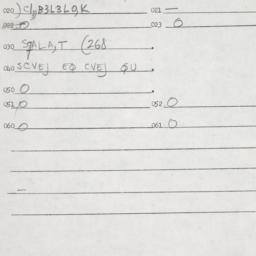 020) C/,,B3L3L0,K 021 —
022 0 023 0
030 STALA,T (268
040 SCVEJ EQ CVEJ QU
050 0
051 0 052 0
060 0 061 0
—